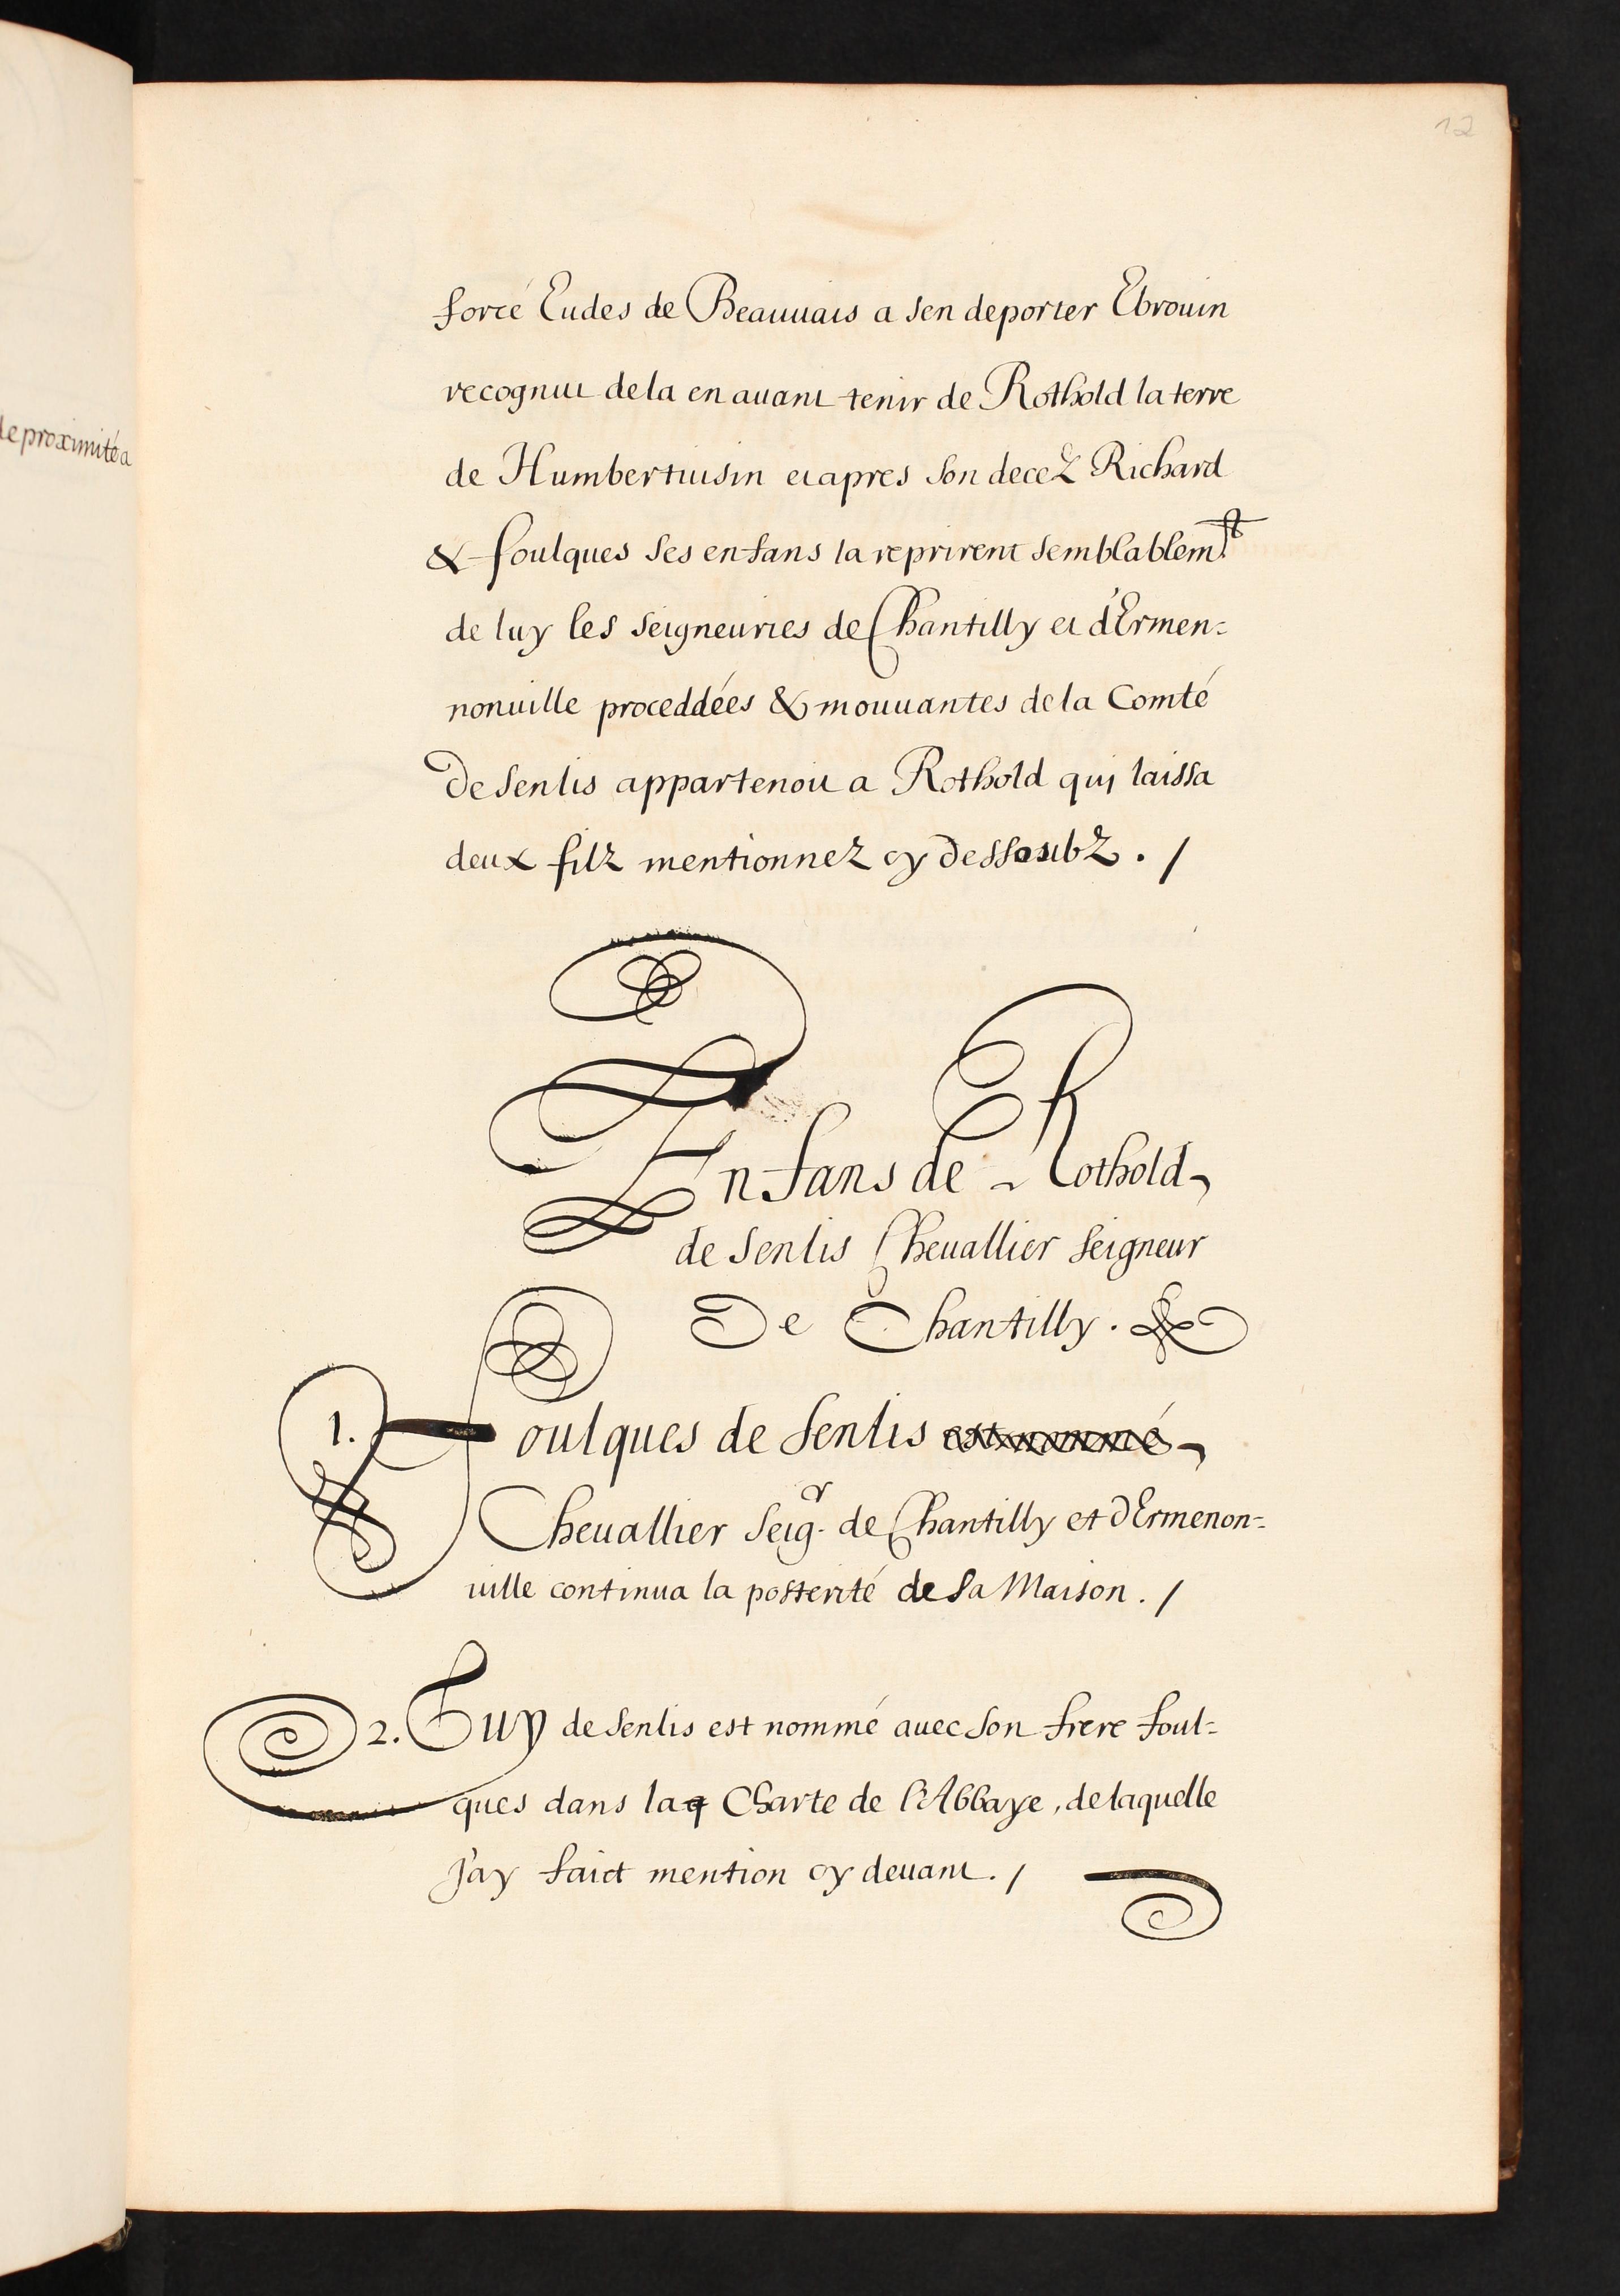 12
le proximité a
forcé Eudes de Beauuais a sen deporter Ebrouin
recognut de la en auant tenir de Rothold la terre
de Humbertuisin et apres son decez Richard
& foulques ses enfans la reprirent semblablemt
de luy les seigneuries de Chantilly et d'Ermen=
nonuille proceddées & mouuantes de la Comté
De Senlis appartenoit a Rothold quj laissa
deux filz mentionnez cy Dessoubz . /
Enfans de Rothold
de Senlis Cheuallier Seigneur
De Chantilly .
1. Foulques de Senlis est nommé
Cheuallier Seigr de Chantilly et dErmenon=
uille continua la posterité de sa Maison . /
2. Guy de Senlis est nommé auec son frere foul=
ques dans laq Charte de l'Abbaye , de laquelle
J'ay faict mention cy deuant . /